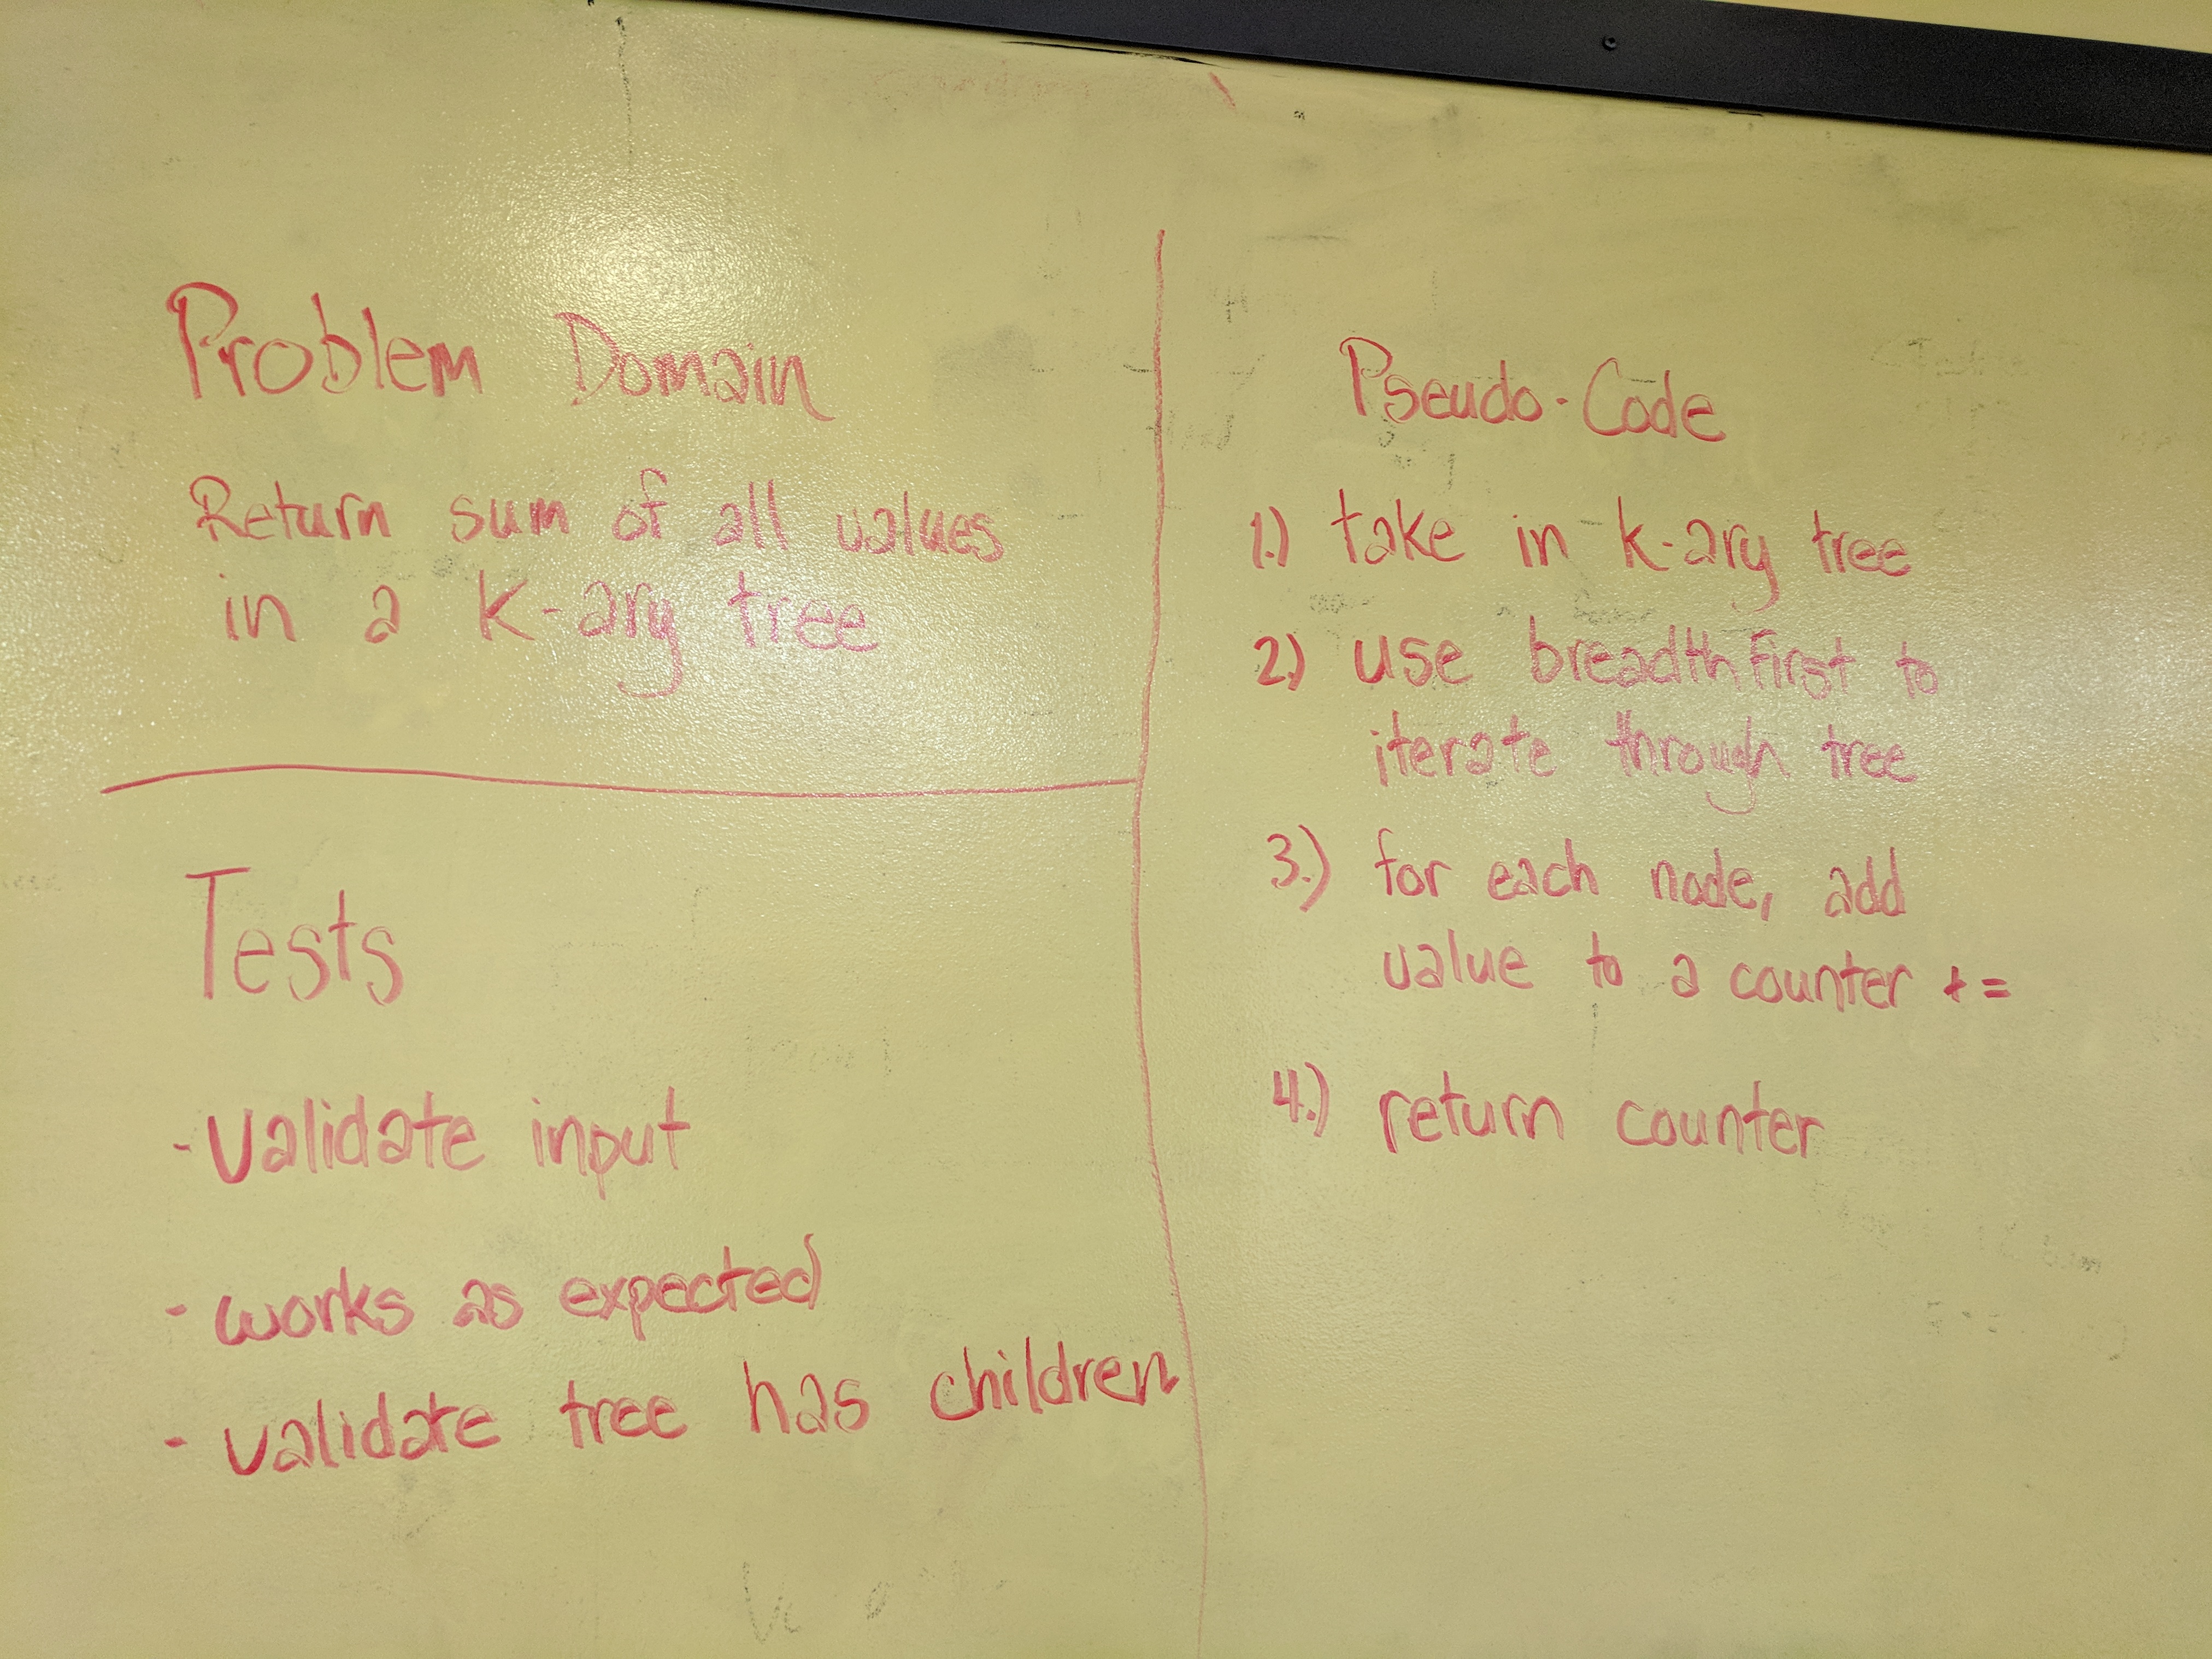 Problem Domain
Return sum of all values
in a K-ary tree
Tests
- validate input
- works as expected
- validate tree has children
Pseudo-Code
1.) take in k-ary tree
2.) use breadthFirst to
iterate through tree
3.) for each node, add
value to a counter +=
4.) return counter